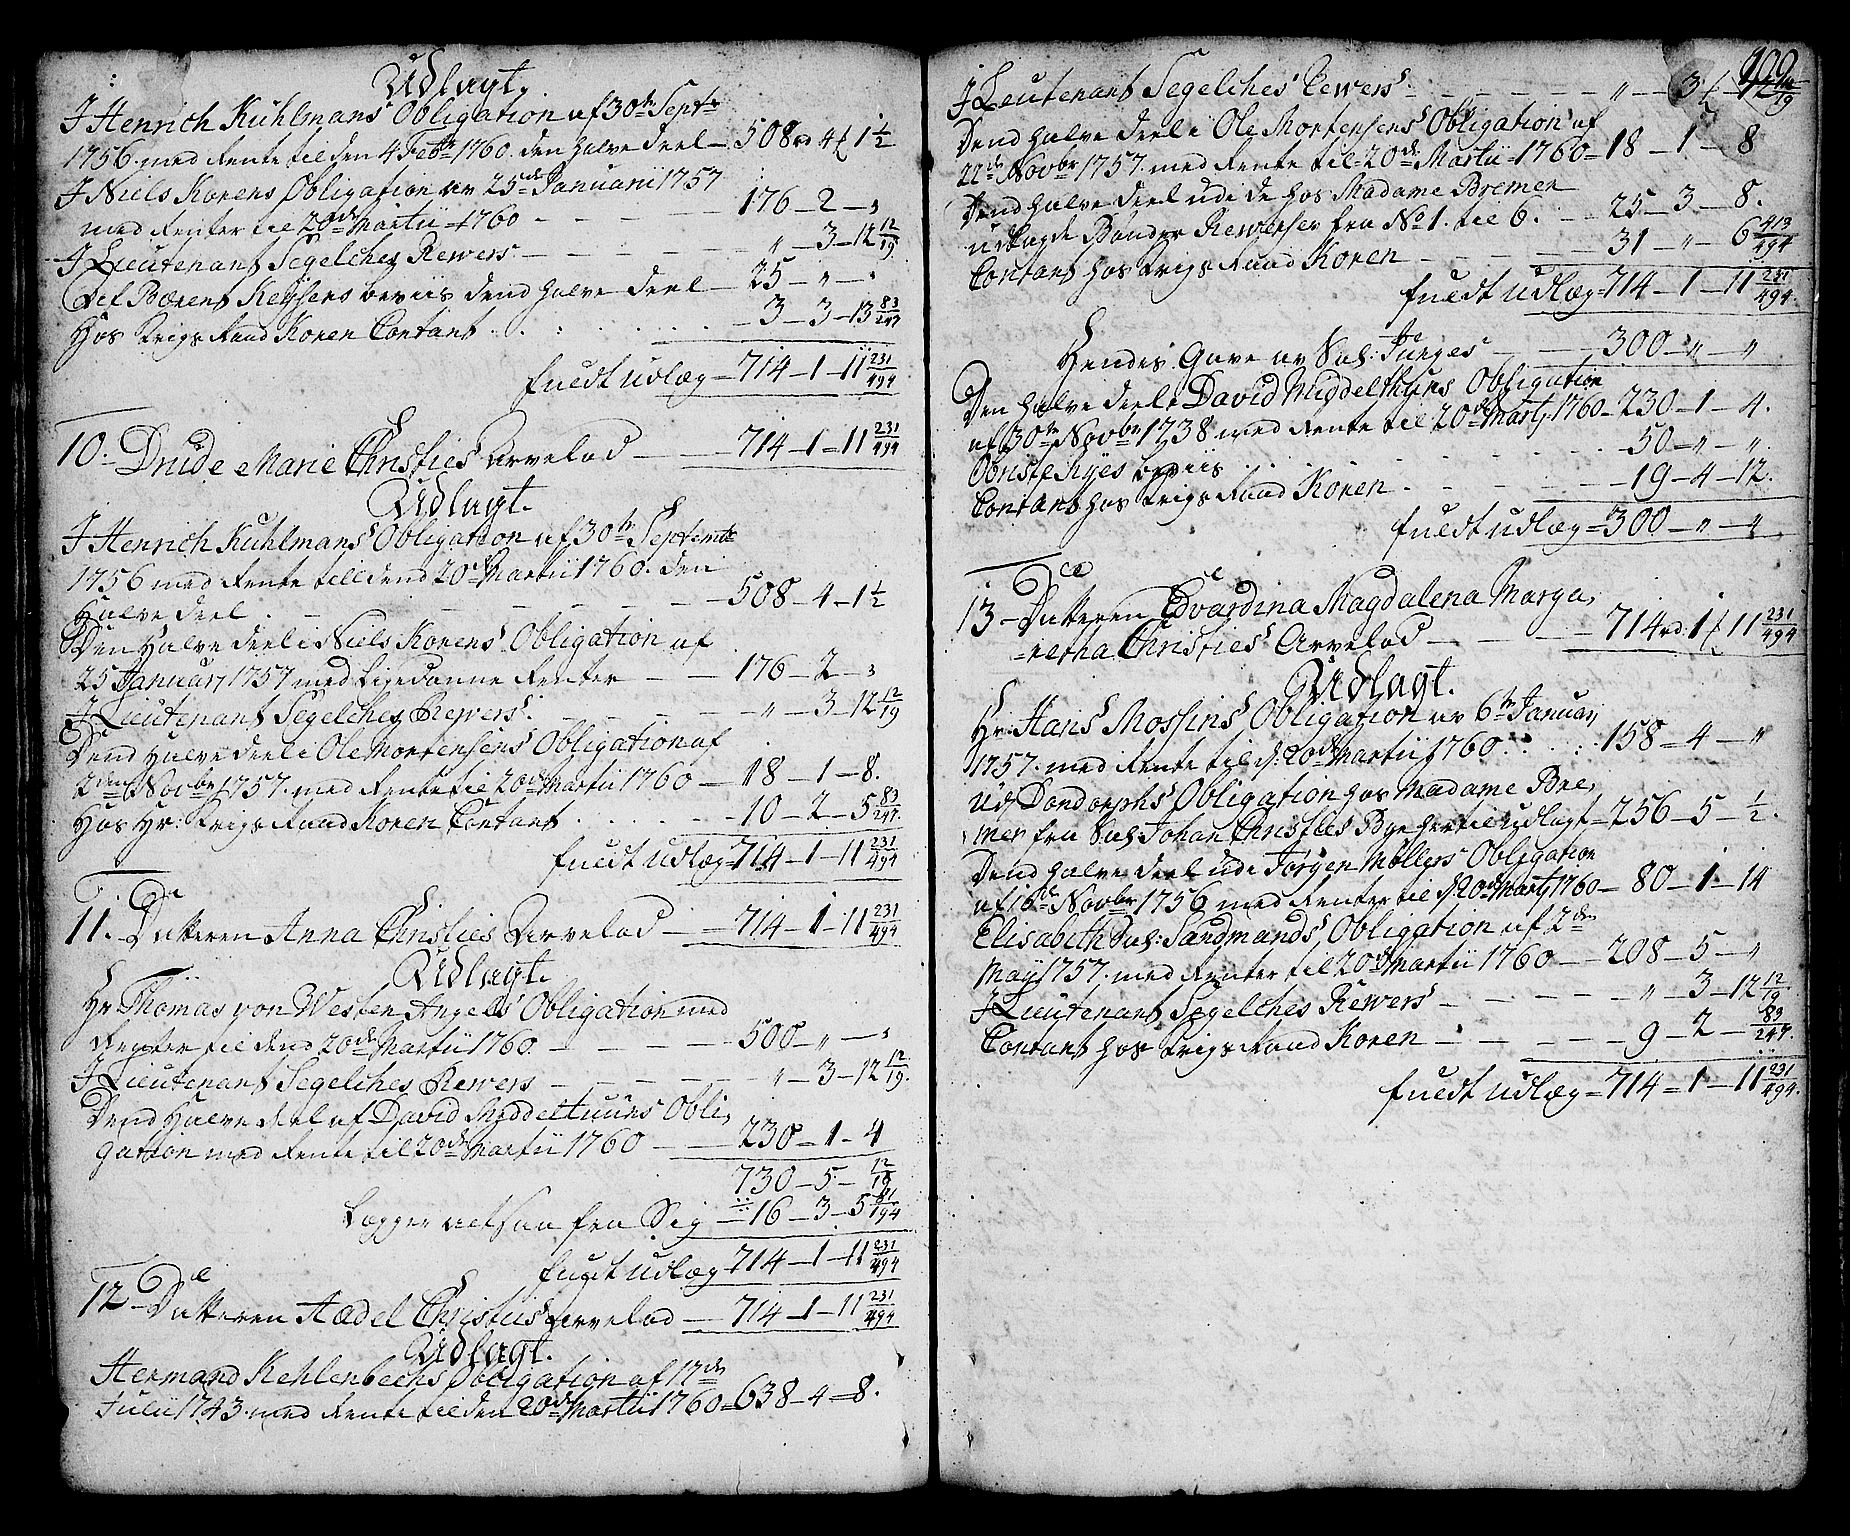 Udlagt.
I Henrich Kuhlmans Obligation af 30te Septr
1756 med Rente til den 4 Febr 1760. den halve deel — 508 rd 4 ſ 1 1/2
I Niels Korens Obligation av 25de Januarii 1757
med Renter til 20de Martii 1760 — 176 — 2 — "
I Lieutenant Segelches Revers — " — 3 — 12 12/19
Bærent Keysers beviis dend halve deel — 25 — " — "
Hos Krigs Raad Koren Contant — 3 — 3 — 13 83/247
fuldt udlæg — 714 — 1 — 11 231/494
10. Drude Marie Christies Arvelod — 714 — 1 — 11 231/494
Udlagt.
I Henrich Kuhlmans Obligation af 30te Septembr
1756 med Rente til dend 20de Martii 1760. den
Halve deel — 508 — 4 — 1 1/2
Den Halve deel i Niels Korens Obligation af
25 Januarj 1757 med ligedanne Renter — 176 — 2 — "
I Lieutenant Segelches Revers — " — 3 — 12 12/19
Dend Halve deel i Ole Mortensens Obligation af
Novbr 1757. med Rente til 20de Martii 1760 — 18 — 1 — 8.
Hos Hr: Krigs Raad Koren Contant — 10 — 2 — 5 83/247.
fuldt udlæg — 714 — 1 — 11 231/494
11. Datteren Anna Christies Arvelod — 714 — 1 — 11 231/494
Udlagt.
Hr Thomas von Westen Angels Obligation med
Renter til dend 20de Martii 1760. — 500 — " — "
I Lieutenant Segelches Revers — " — 3 — 12 12/19.
Dend Halve deel af David Middeltuuns Obli,
gation med Rente til 20de Martii 1760 — 230 — 1 — 4
730 — 5 — 12/19
Lægger altsaa fra Sig — 16 — 3 — 5 81/494
fuldt udlæg 714 — 1 — 11 231/494
12 Datteren Aædel Christies Arvelod — 714 — 1 — 11 231/494
Udlagt.
Hermand Kehlenbechs Obligation af 17de
Julii 1743. med Rente til den 20de Martii 1760 — 638 — 4 — 8.
100
I Leutenant Segelches Revers — " — 3 ſ 12 12/19
Dend halve deel i Ole Mortensens Obligation af
22de Novbr 1757. med Rente til 20de Martii 1760 — 18 — 1 — 8
Dend halve deel udi de hos Madame Bremer
udlagde Bønder Reverser fra No 1. til 6. — 25 — 3 — 8.
Contant hos Krigs Raad Koren — 31 — " — 6 413/494
fuldt udlæg — 714 — 1 — 11 231/494.
Hendis Gave av Sal: Junges — 300 — " — "
Den halve deel i David Migdelthuns Obligation
af 30te Novbr 1738 med Rente til 20de Martj 1760 — 230 — 1 — 4.
Obriste beviis — 50 — " — ".
Contant hos Krigs Raad Koren — 19 — 4 — 12.
fuldt udlæg — 300 — " — "
13 — Datteren Edvardina Magdalena Marga,
retha Christies Arvelod — 714 rd 1 ſ 11 231/494
Udlagt.
Hr Hans Mossins Obligation av 6te Januarj
1757. med Rente til d: 20de Martii 1760 — 158 — 4 — "
Udj Dondorphs Obligation hos Madame Bre,
mer fra Sal Johan Christies Boe hertil udlagt — 256 — 5 — 1/2.
Dend halve deel udi Jørgen Møllers Obligation
af 16de Novbr 1756 med Renter til d 20de Martj 1760 — 80 — 1 — 14
Elisabeth Sal: Sandmands Obligation af 2den
Maÿ 1757. med Renter til 20de Martii 1760 — 208 — 5 — "
I Lieutenant Segelches Revers — " — 3 — 12 12/19.
Contant hos Krigs Raad Koren — 9 — 2 — 83/247.
fuldt udlæg — 714 — 1 — 11 231/494.